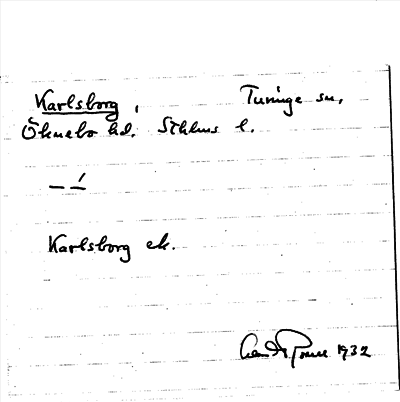 Karlsborg, Turinge sn.
Öknebo hd. Sthlms l.
— —́
Karlsborg ek.
1932